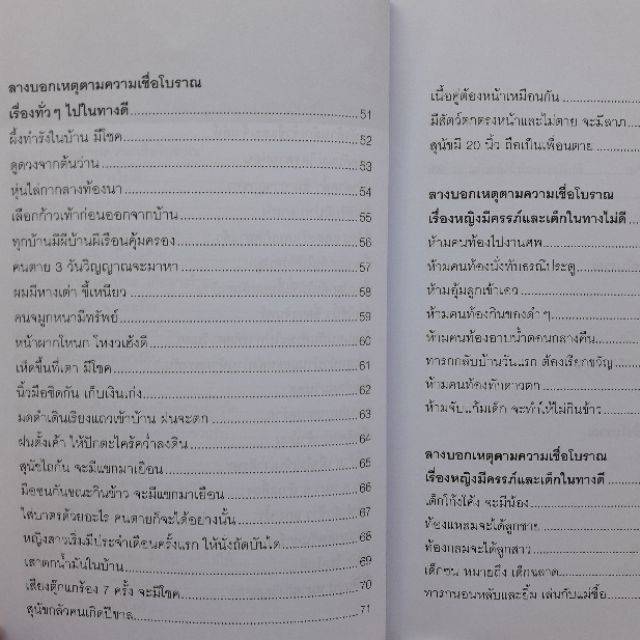 ลางบอกเหตุตามความเชื่อโบราณ
เรื่องทั่วๆ ไปในทางดี 51
ผึ้งทำรังในบ้าน มีโชค 52
ดูดวงจากต้นว่าน 53
หุ่นไล่กากลางท้องนา 54
เลือกก้าวเท้าก่อนออกจากบ้าน 55
ทุกบ้านมีผีบ้านผีเรือนคุ้มครอง 56
คนตาย 3 วันวิญญาณจะมาหา 57
ผมมีหางเต่า ขี้เหนียว 58
คนจมูกหนามีทรัพย์ 59
หน้าผากโหนก โหงวเฮ้งดี 60
เห็ดขึ้นที่เตา มีโชค 61
นิ้วมือชิดกัน เก็บเงินเก่ง 62
มดดำเดินเรียงแถวเข้าบ้าน ฝนจะตก 63
ฝนตั้งเค้า ให้ปักตะไคร้คว่ำลงดิน 64
สุนัขไถก้น จะมีแขกมาเยือน 65
มือชนกันขณะกินข้าว จะมีแขกมาเยือน 66
ใส่บาตรด้วยอะไร คนตายก็จะได้อย่างนั้น 67
หญิงสาวเริ่มมีประจำเดือนครั้งแรก ให้นั่งถัดบันได 68
เสาตกน้ำมันในบ้าน 69
เสียงตุ๊กแกร้อง 7 ครั้ง จะมีโชค 70
สุนัขกลัวคนเกิดปีขาล 71
เนื้อคู่ต้องหน้าเหมือนกัน
มีสัตว์ตกตรงหน้าและไม่ตาย จะมีลาภ
สุนัขมี 20 นิ้ว ถือเป็นเพื่อนตาย
ลางบอกเหตุตามความเชื่อโบราณ
เรื่องหญิงมีครรภ์และเด็กในทางไม่ดี
ห้ามคนท้องไปงานศพ
ห้ามคนท้องนั่งทับธรณีประตู
ห้ามอุ้มลูกเข้าเอว
ห้ามคนท้องกินของดำๆ
ห้ามคนท้องอาบน้ำตอนกลางคืน
ทารกกลับบ้านวันแรก ต้องเรียกขวัญ
ห้ามคนท้องทักดาวตก
ห้ามจับแก้มเด็ก จะทำให้ไม่กินข้าว
ลางบอกเหตุตามความเชื่อโบราณ
เรื่องหญิงมีครรภ์และเด็กในทางดี
เด็กโก้งโค้ง จะมีน้อง
ท้องแหลมจะได้ลูกชาย
ท้องกลมจะได้ลูกสาว
เด็กซน หมายถึง เด็กฉลาด
ทารกนอนหลับและยิ้ม เล่นกับแม่ซื้อ